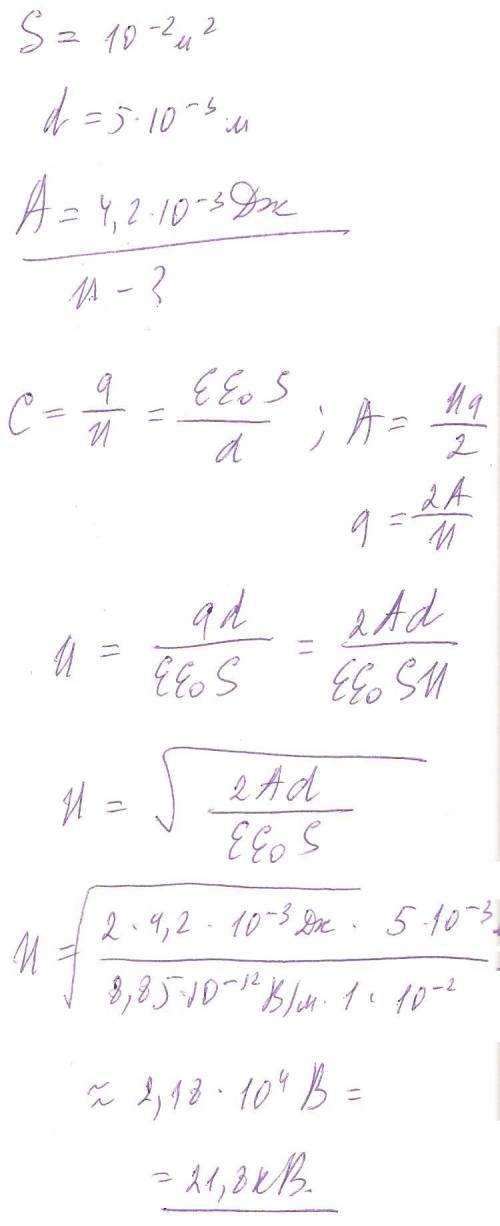 S = 10⁻² м²
d = 5·10⁻³ м
A = 4,2·10⁻³ Дж
U - ?
C = q/U = εε₀S/d ; A = Uq/2
q = 2A/U
U = qd/εε₀S = 2Ad/εε₀SU
U = √(2Ad/εε₀S)
U = √(2·4,2·10⁻³ Дж · 5·10⁻³/8,85·10⁻¹² В/м · 1 · 10⁻²)
≈ 2,18 · 10⁴ В =
= 21,8 кВ.